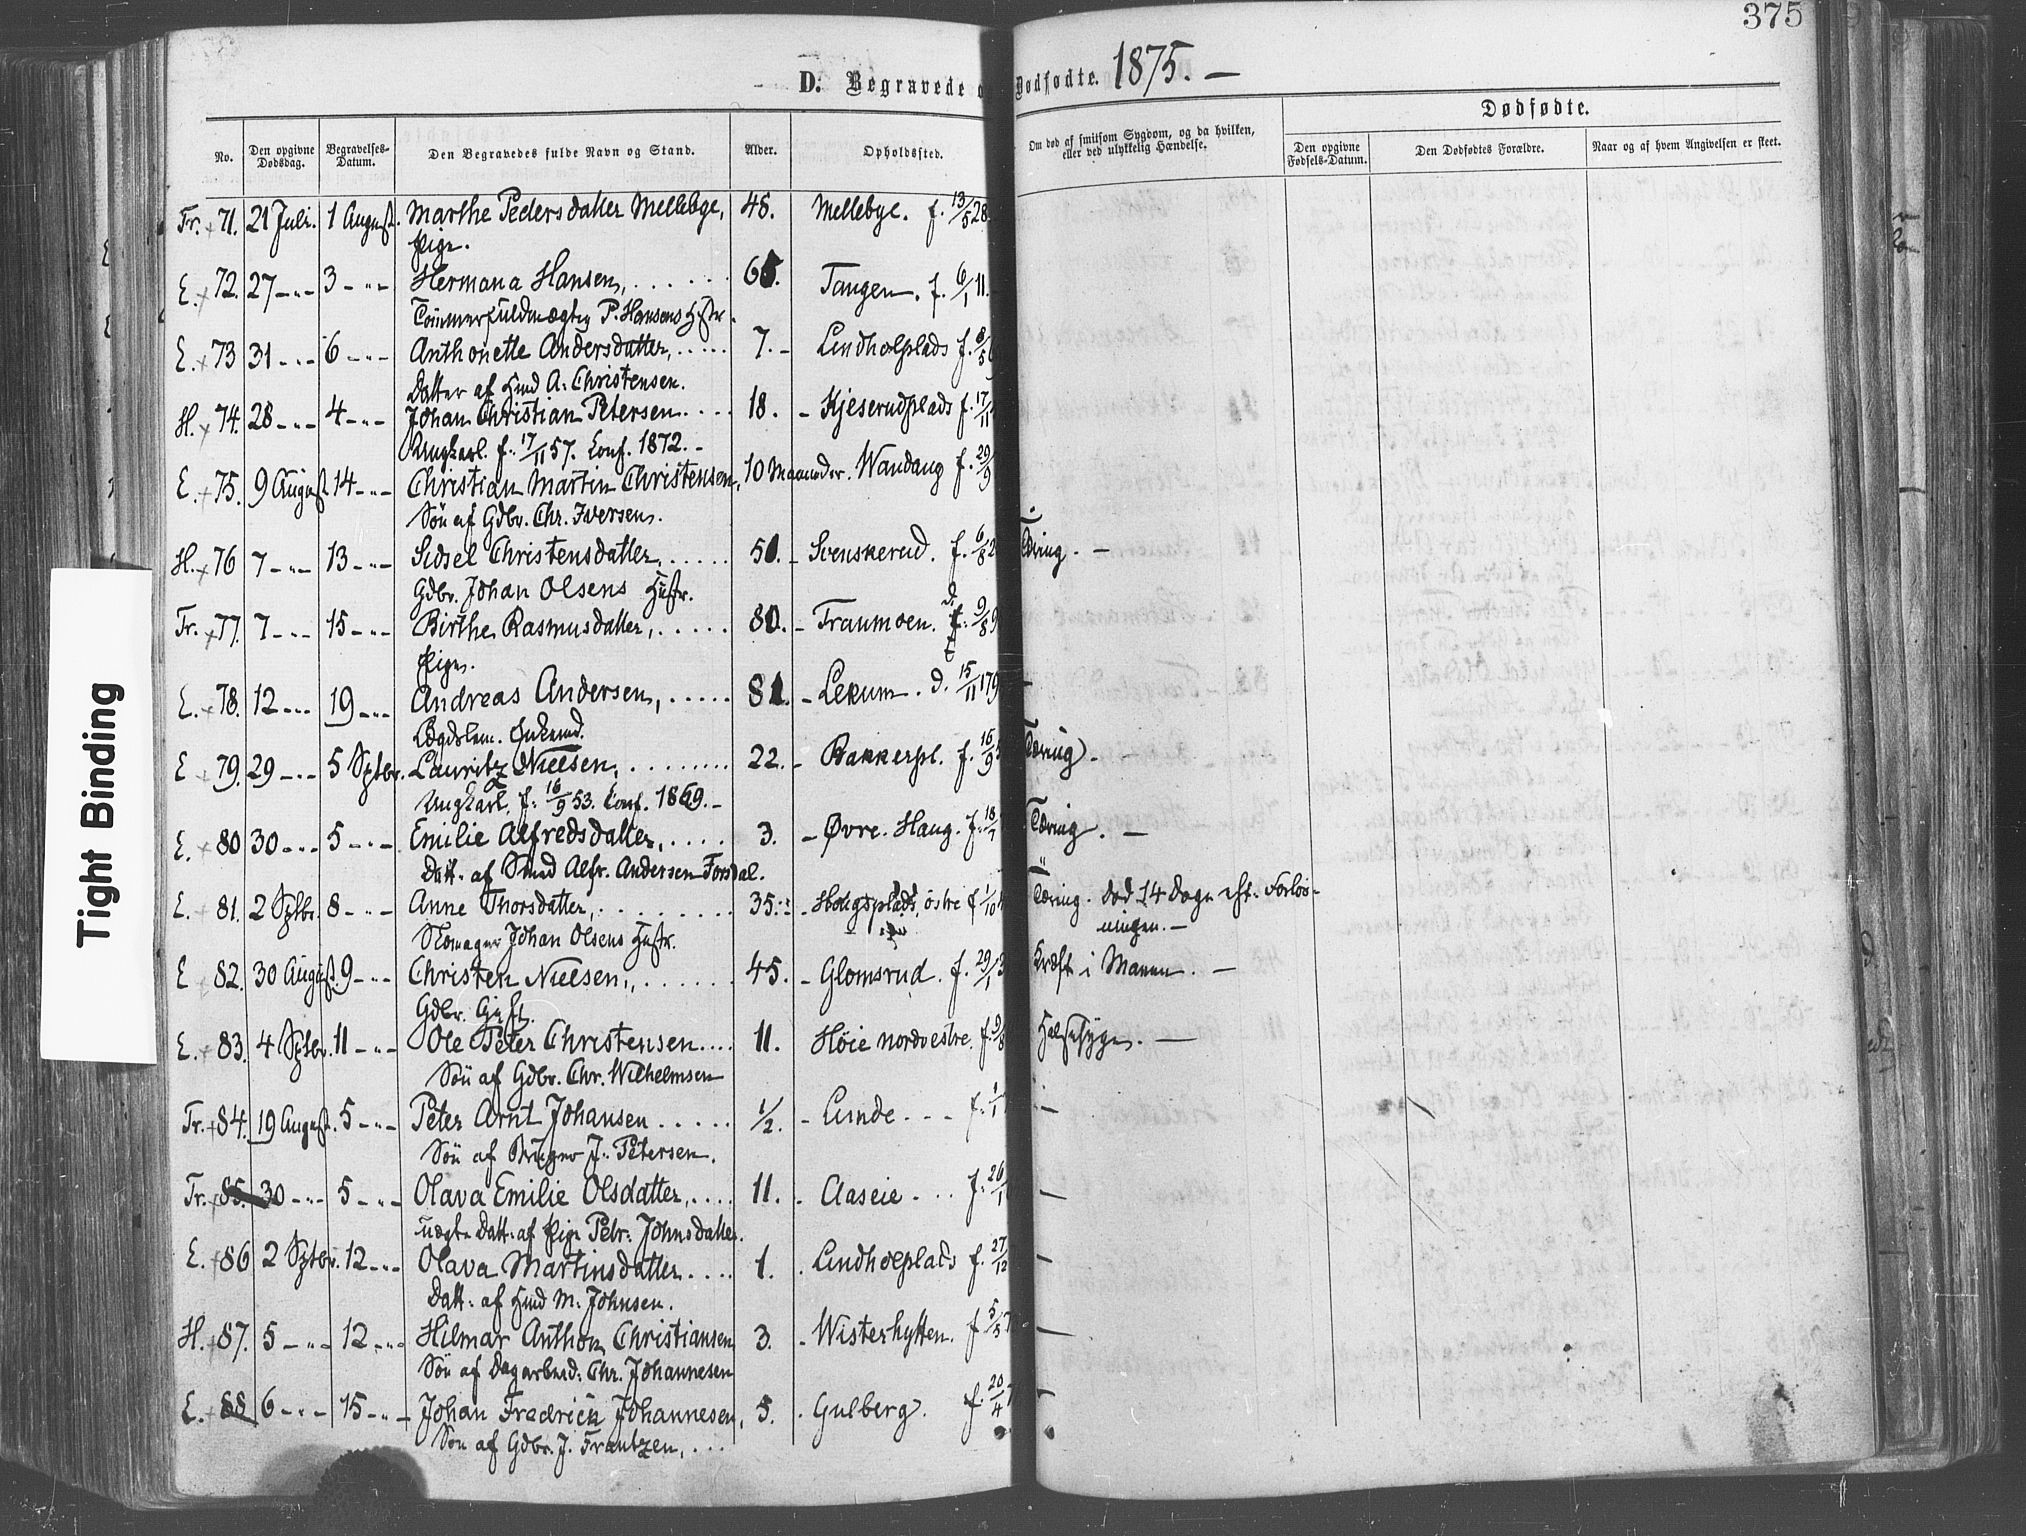 375
D. Begravede o
Dødfødte. 1875. —
No.
Den opgivne Dødsdag.
Begravelses-Datum.
Den Begravedes fulde Navn og Stand.
Alder.
Opholdssted.
Om død af smitsom Sygdom, og da hvilken, eller ved ulykkelig Hændelse.
Dødfødte.
Den opgivne Fødsels-Datum.
Den Dødfødtes Forældre.
Naar og af hvem Angivelsen er skeet.
Fr. 71. 21 Juli. 1 August. Marthe Pedersdatter Mellebye, 48. Mellebye. f. 13/5 28.
Pige.
E. 72. 27 -"- 3 -"- Hermana Hansen, 65. Tangen. f. 6/1 11.
Tømmerfuldmægtig P. Hansens Hstr.
E. 73 31 -"- 6 -"- Anthonette Andersdatter, 7. - Lindholplads f. 8/5
Datter af Hmd A. Christensen.
H. 74. 28 -"- 4 -"- Johan Christian Petersen 18. - Kjeserudplads f. 17/11
Ungkarl. f. 17/11 57. Conf. 1872. -
E. 75. 9 August 14 -"- Christian Martin Christensen, 10 Maaneder. Wandaug f. 29/9
Søn af Gdbr. Chr. Iversen.
H. 76 7 -"- 13 -"- Sidsel Christensdatter, 50. - Svenskerud. f. 6/8 2 Tæring. -
Gdbr. Johan Olsens Hustr.
Fr. 77. 7 -"- 15 -"- Birthe Rasmusdatter, 80. - Traumoen. 9/8 9
Pige.
E. 78. 12 -"- 19 -"- Andreas Andersen, 81. - Lekum. d. 15/11 179 -
Lægdslem. Enkemd.
E 79. 29 -"- 5 Sptbr. Lauritz Nielsen, 22. - Bakkerpl. f. 16/9 5 Tæring. -
Ungkarl. f. 16/9 53. Conf. 1869. -
E. 80 30 -"- 5 -"- Emilie Alfredsdatter, 3. - Øvre. Haug. f. 18/7 Tæring. -
Datt. af Smed Alfr. Andersen Forsdal.
E. 81. 2 Sptbr. 8 -"- Anne Thorsdatter, 35. - Haugsplads, østre f 1/10 Tæring. død 14 Dage eft. Forløs-
Skomager Johan Olsens Hustr. ningen. -
E 82. 30 August. 9 -"- Christen Nielsen, 45. - Glomsrud. f. 29/1 3 Kræft i Maven. -
Gdbr. Gift.
E. 83. 4 Sptbr. 11 -"- Ole Peter Christensen 11. Høie nordvestre. f. 9/8 Halssyge. -
Søn af Gdbr. Chr. Wilhelmsen
Fr. 84. 19 August. 5 -"- Peter Arnt Johansen 1/2. - Lunde f. 1/1 -
Søn af Bruger J. Petersen.
Fr. 85. 30 -"- 5 -"- Olava Emilie Olsdatter, 11. - Aaseie f. 26/1 -
uægte Datt. af Pige Petr. Johnsdatter.
E. 86 2 Sptbr. 12 -"- Olava Martinsdatter 1. Lindholplads f. 27/12 -
Datt. af Hmd M. Johnsen.
H. 87. 5 -"- 12 -"- Hilmar Anthon Christiansen 3. - Wisterhytten. f 5/5 7 -
Søn af Dagarbeid. Chr. Johannesen
E. 88. 6 -"- 15 -"- Johan Fredrick Johannesen, 5. Gulberg. f. 20/4 7 -
Søn af Gdbr. J. Frantzen,
Tight Binding